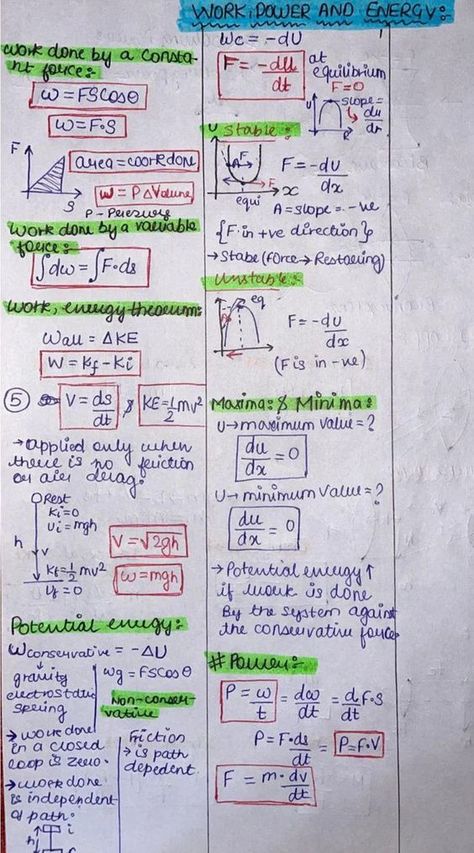 WORK, POWER AND ENERGY:
Work done by a consta-
nt force:-
W = FScosθ
W = F·S
F
S
area = workdone
W = PΔVolume
Work done by a variable
force:-
∫dw = ∫F·ds
Work, energy theorem:
Wall = ΔKE
W = Kf - Ki
5
V = ds/dt & KE = 1/2 mv²
→ applied only when
there is no friction
or air drag.
Rest
Ki = 0
Ui = mgh
h
v
Kf = 1/2 mv²
Uf = 0
V = √2gh
W = mgh
Potential energy:
Wconservative = -ΔU
gravity
electrostatic
spring
Wg = FScosθ
Non-conser-
vative
→ work done
in a closed
loop is zero.
→ work done
is independent
of path.
i
h
Friction
→ is path
depedent
Wc = -dU
F = -dU/dt
at
equilibrium
F = 0
U
slope =
du/dr
R
Stable:-
U
F
x
equi
F = -dU/dx
A = slope = -ve
{F in +ve direction}
→ Stabe (force → Restoring)
Unstable:-
eq
F = -dU/dx
(F is in -ve)
Maxima: & Minima:
U → maximum value = ?
du/dx = 0
U → minimum value = ?
du/dx = 0
→ Potential energy ↑
if work is done
By the system against
the conservative force.
# Power:-
P = w/t = dw/dt = d/dt F·S
P = F·ds/dt = P = F·V
F = m·dv/dt